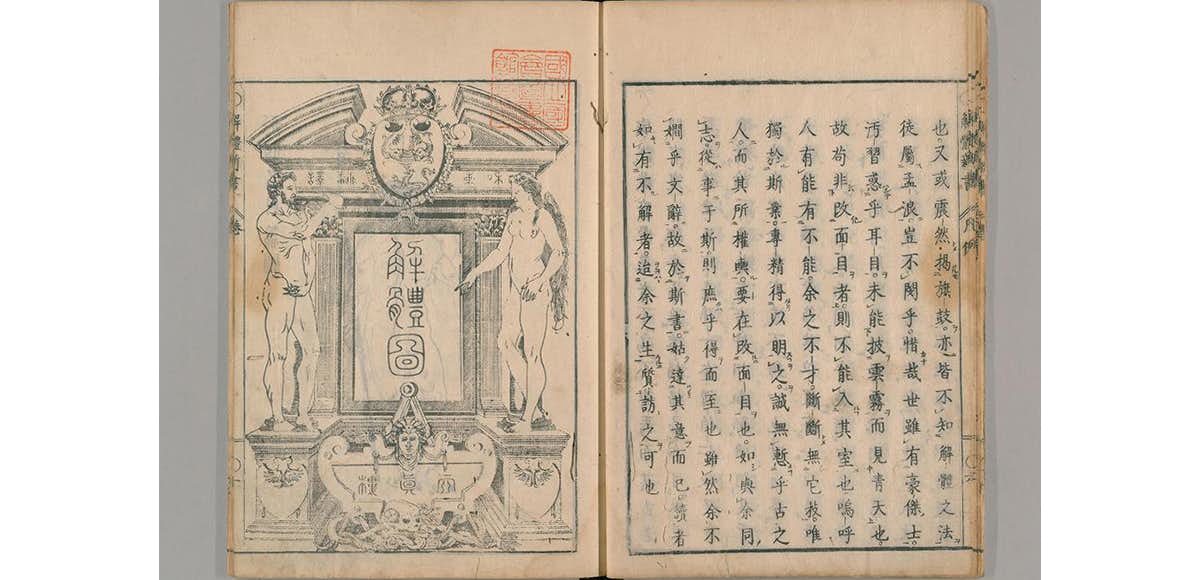 解體新書 凡例
也又或震然揭旗鼓。亦皆不知解體之法
徒屬孟浪。豈不閔乎。惜哉世雖有豪傑士。
汚習惑乎耳目。未能披雲霧而見青天也。
故苟非改面目者。則不能入其室也嗚呼
人有能有不能。余之不才。斷斷無它技。唯
獨於斯業。專精得以明之。誠無慙乎古之
人。而其所權輿。要在改面目也。如與余同
志。從事于斯。則庶乎得而至也雖然余不
嫺乎文辭。故於斯書。姑達其意而已。讀者
如有不解者。造余之生質訪之可也
國立國
會圖書
解體圖
天眞樓
解體新書 卷